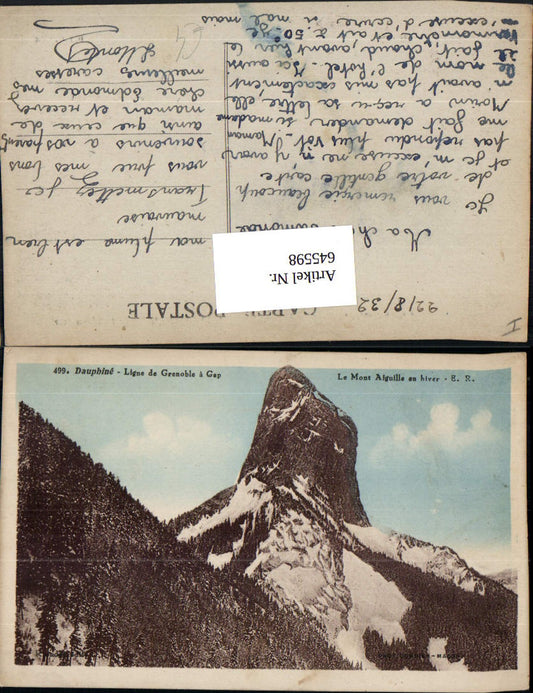 22/8/32 CARTE POSTALE
I
Artikel Nr.
645598
Ma ch
Je vous remercie beaucoup
de votre gentille carte
et je m'excuse ne n'y avoir
pas repondu plus vot. Maman
me fait demander, si madame
Morin a reçu sa lettre elle
n'avait pas mis exactement
le nom de l'hotel.
Il fait chaud, avant hier le
m'excuse d'ecrire n mal mais
ma plume est bien
mauvaise
Transmettez je
vous prie mes bons
souvenirs à vos parents
ainsi que ceux de
maman et recevez
chère Edmonde mes
meilleures caresses
499. Dauphiné - Ligne de Grenoble à Gap
Le Mont Aiguille en hiver - E. R.